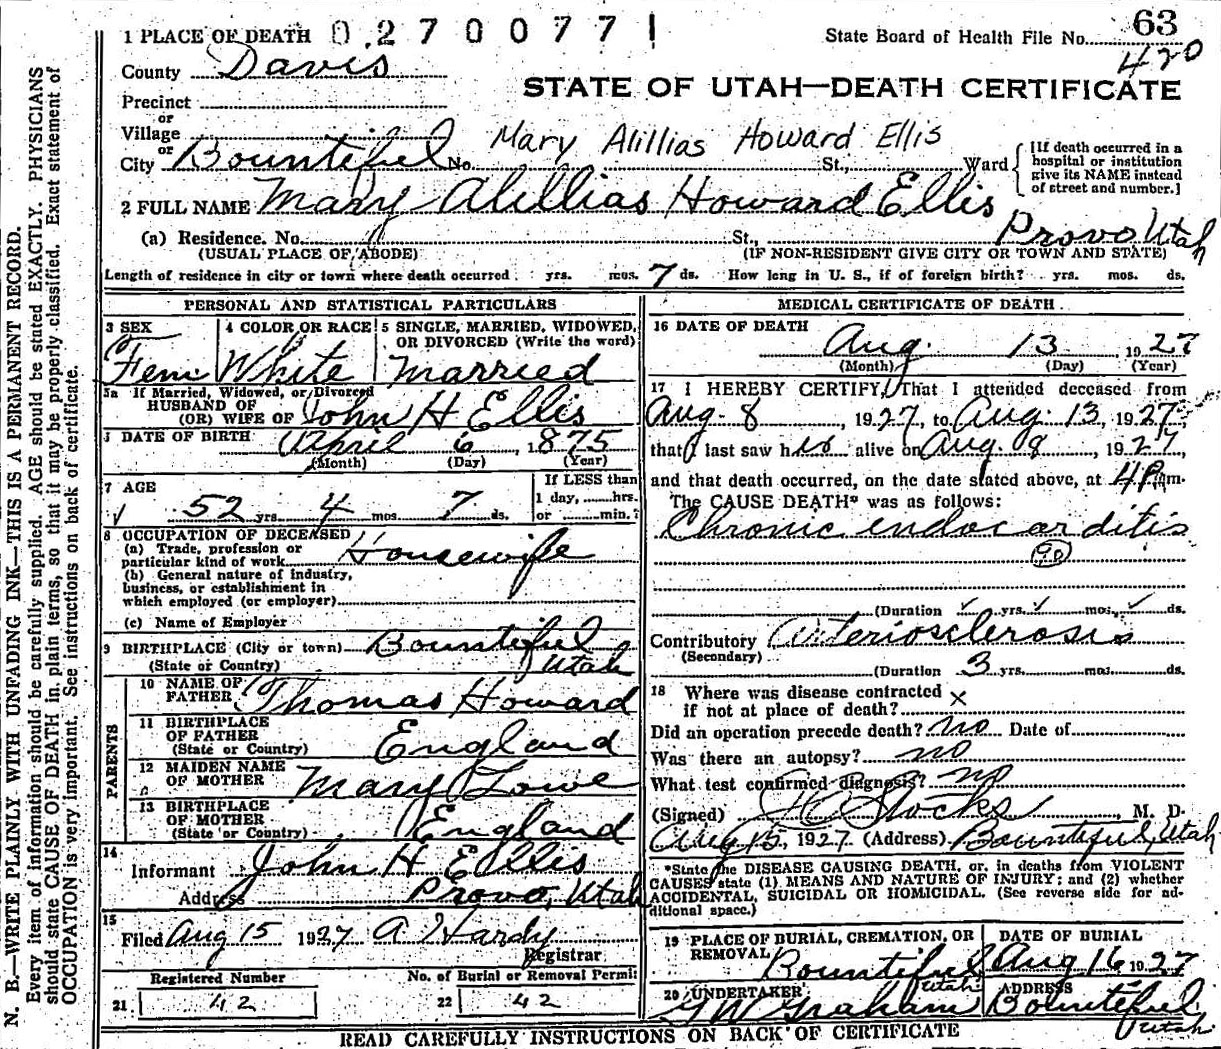 1 PLACE OF DEATH 0270077 | State Board of Health File No. 63
420
County Davis
STATE OF UTAH—DEATH CERTIFICATE
Precinct
or
Village Mary Alillias Howard Ellis
or
City Bountiful No. St., Ward
[If death occurred in a hospital or institution give its NAME instead of street and number.]
2 FULL NAME Mary Alillias Howard Ellis
(a) Residence. No. St., Provo, Utah
(USUAL PLACE OF ABODE) (IF NON-RESIDENT GIVE CITY OR TOWN AND STATE)
Length of residence in city or town where death occurred yrs. mos. 7 ds. How long in U. S., if of foreign birth? yrs. mos. ds.
PERSONAL AND STATISTICAL PARTICULARS
3 SEX 4 COLOR OR RACE 5 SINGLE, MARRIED, WIDOWED, OR DIVORCED (Write the word)
Fem White Married
5a If Married, Widowed, or Divorced
HUSBAND OF
(OR) WIFE OF John H Ellis
DATE OF BIRTH April 6, 1875
(Month) (Day) (Year)
7 AGE If LESS than
52 yrs. 4 mos. 7 ds. 1 day, hrs.
or min.?
8 OCCUPATION OF DECEASED
(a) Trade, profession or
particular kind of work Housewife
(b) General nature of industry,
business, or establishment in
which employed (or employer)
(c) Name of Employer
9 BIRTHPLACE (City or town) Bountiful
(State or Country) Utah
PARENTS
10 NAME OF
FATHER Thomas Howard
11 BIRTHPLACE
OF FATHER
(State or Country) England
12 MAIDEN NAME
OF MOTHER Mary Lowe
13 BIRTHPLACE
OF MOTHER
(State or Country) England
14
Informant John H Ellis
Address Provo, Utah
15
Filed Aug 15 1927 A Hardy
Registrar
Registered Number No. of Burial or Removal Permit
21 42 22 42
MEDICAL CERTIFICATE OF DEATH
16 DATE OF DEATH
Aug. 13, 1927
(Month) (Day) (Year)
17 I HEREBY CERTIFY, That I attended deceased from
Aug. 8, 1927, to Aug. 13, 1927,
that I last saw h alive on Aug. 8, 1927
and that death occurred, on the date stated above, at 4 P.m.
The CAUSE DEATH* was as follows:
Chronic endocarditis
90
(Duration yrs. mos. ds.
Contributory Arteriosclerosis
(Secondary)
(Duration 3 yrs. mos. ds.
18 Where was disease contracted
if not at place of death? x
Did an operation precede death? no Date of
Was there an autopsy? no
What test confirmed diagnosis? no
(Signed) Stocks, M. D.
Aug 15, 1927 (Address) Bountiful, Utah
*State the DISEASE CAUSING DEATH, or, in deaths from VIOLENT
CAUSES state (1) MEANS AND NATURE OF INJURY; and (2) whether
ACCIDENTAL, SUICIDAL OR HOMICIDAL. (See reverse side for additional space.)
19 PLACE OF BURIAL, CREMATION, OR REMOVAL DATE OF BURIAL
Bountiful Utah Aug 16 1927
20 UNDERTAKER ADDRESS
Graham Bountiful Utah
READ CAREFULLY INSTRUCTIONS ON BACK OF CERTIFICATE
N. B.—WRITE PLAINLY WITH UNFADING INK—THIS IS A PERMANENT RECORD.
Every item of information should be carefully supplied. AGE should be stated EXACTLY. PHYSICIANS
should state CAUSE OF DEATH in plain terms, so that it may be properly classified. Exact statement of
OCCUPATION is very important. See instructions on back of certificate.